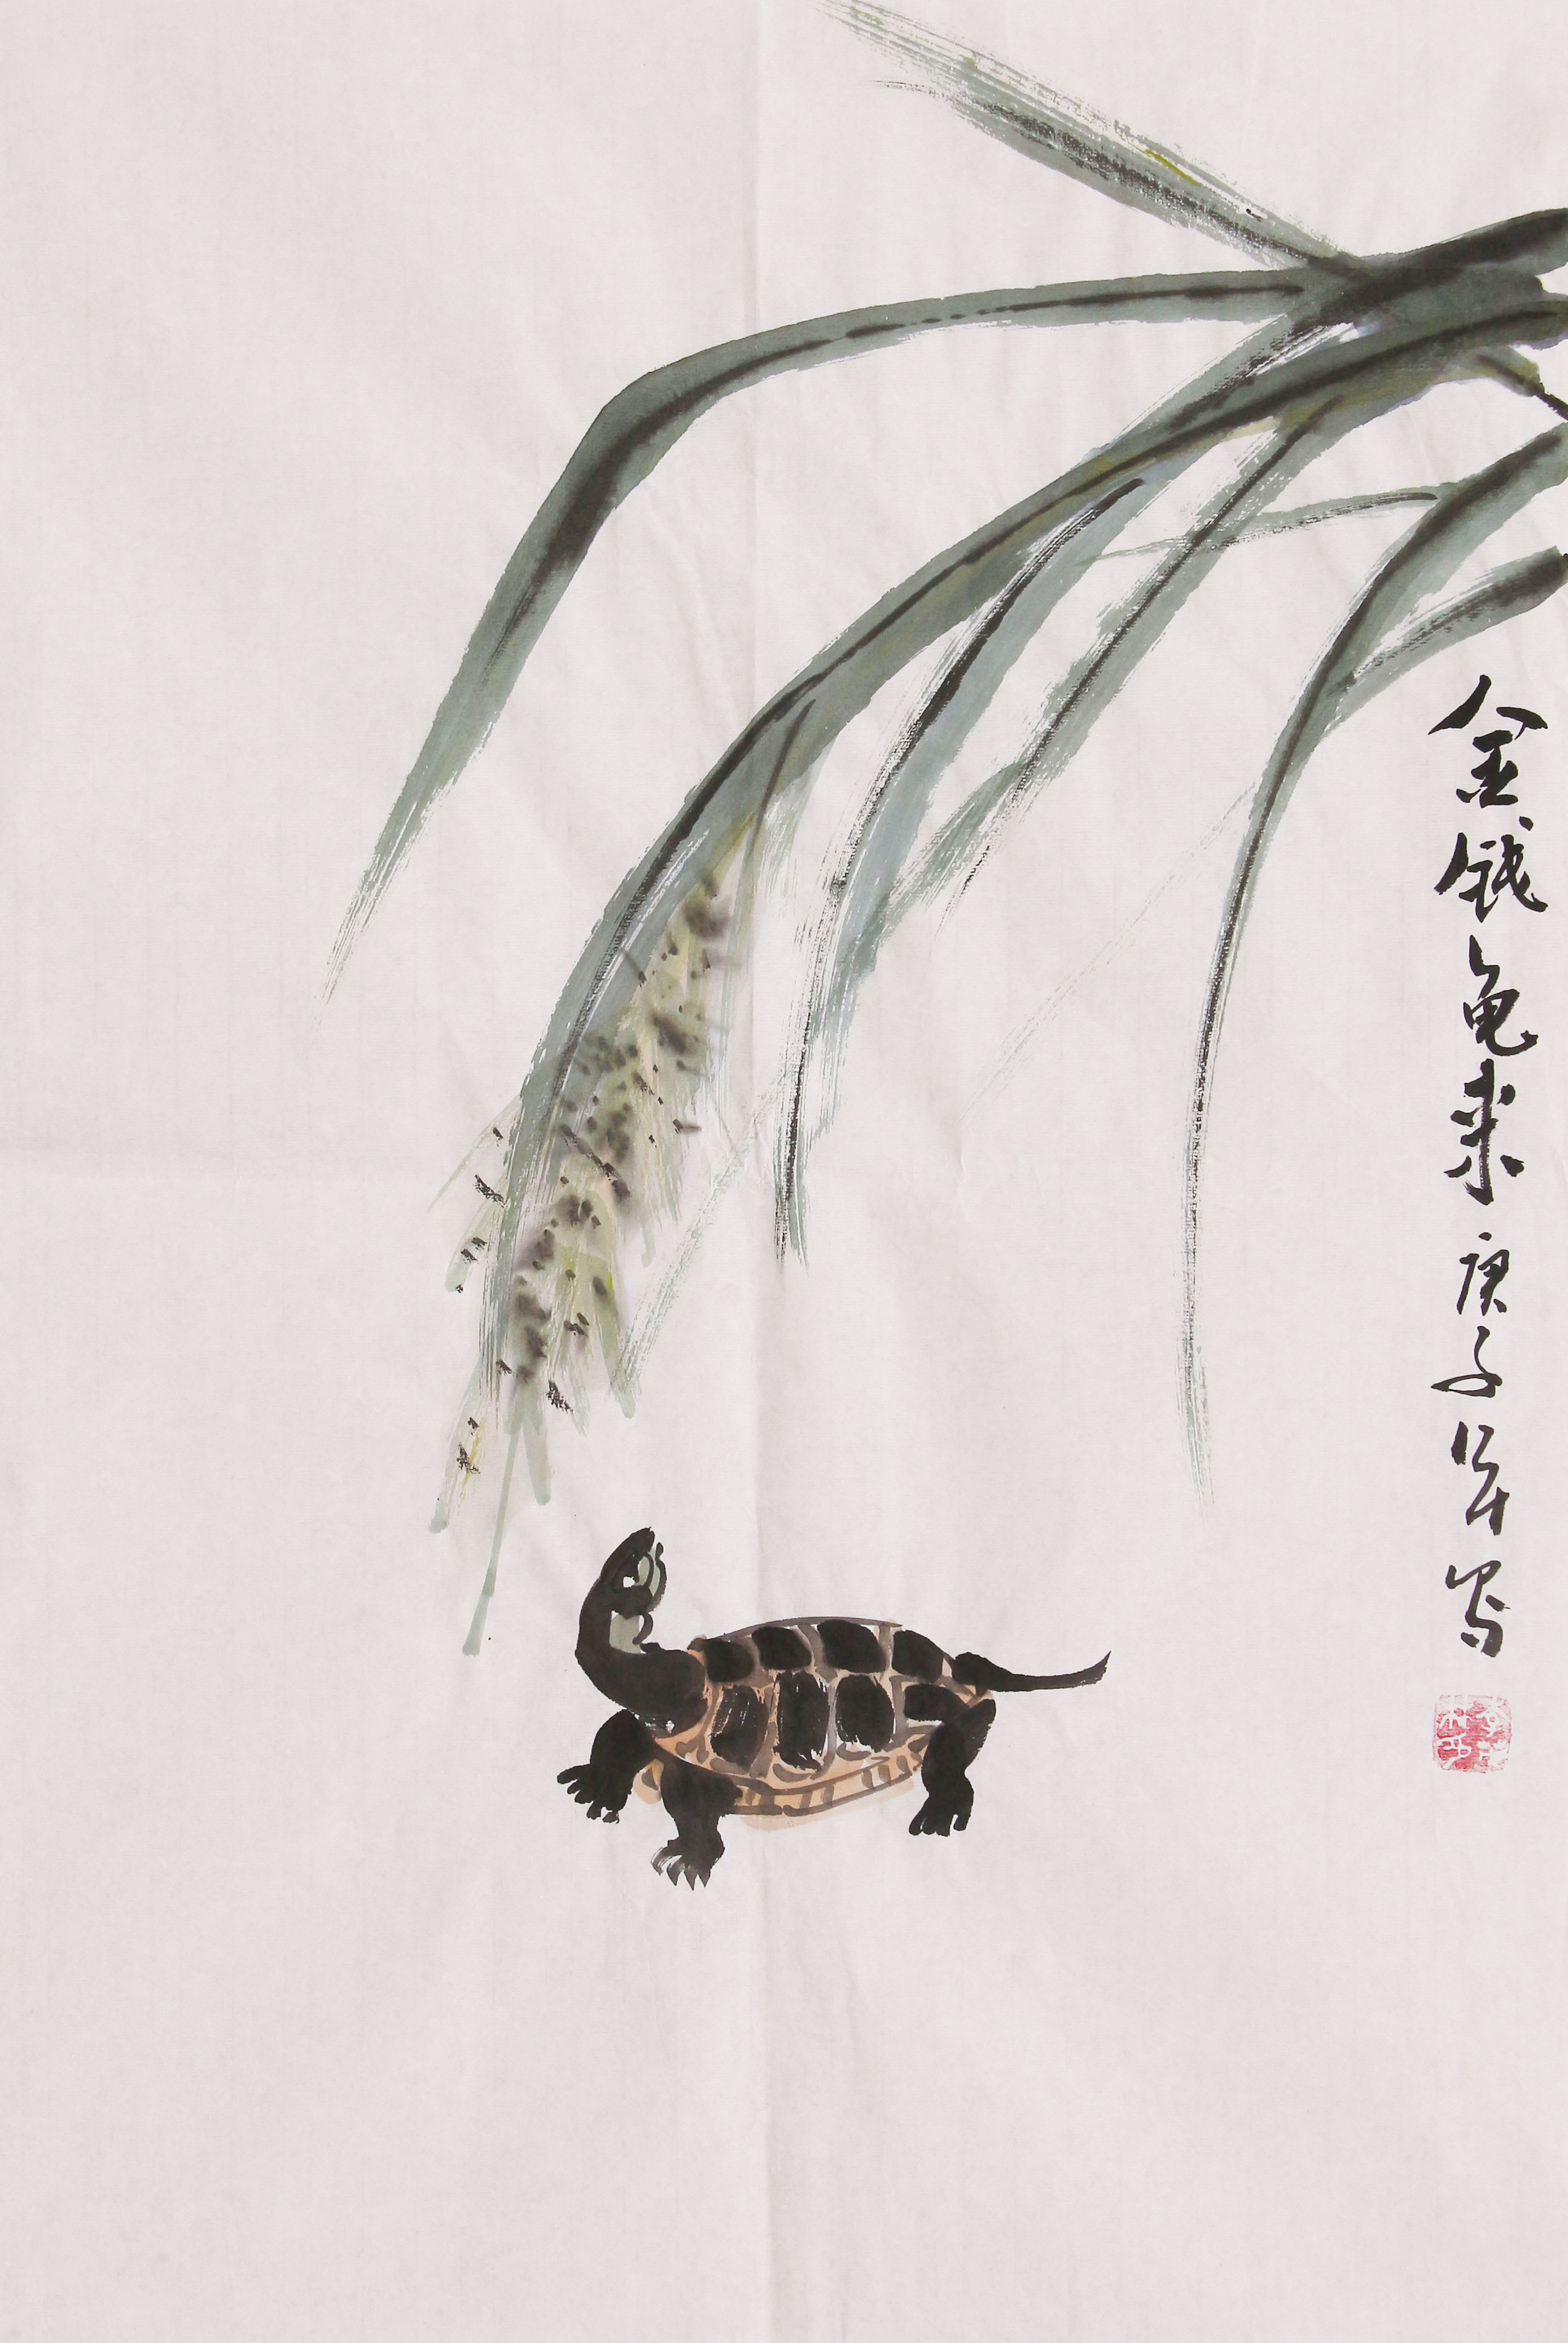 金钱龟来 庚子 写